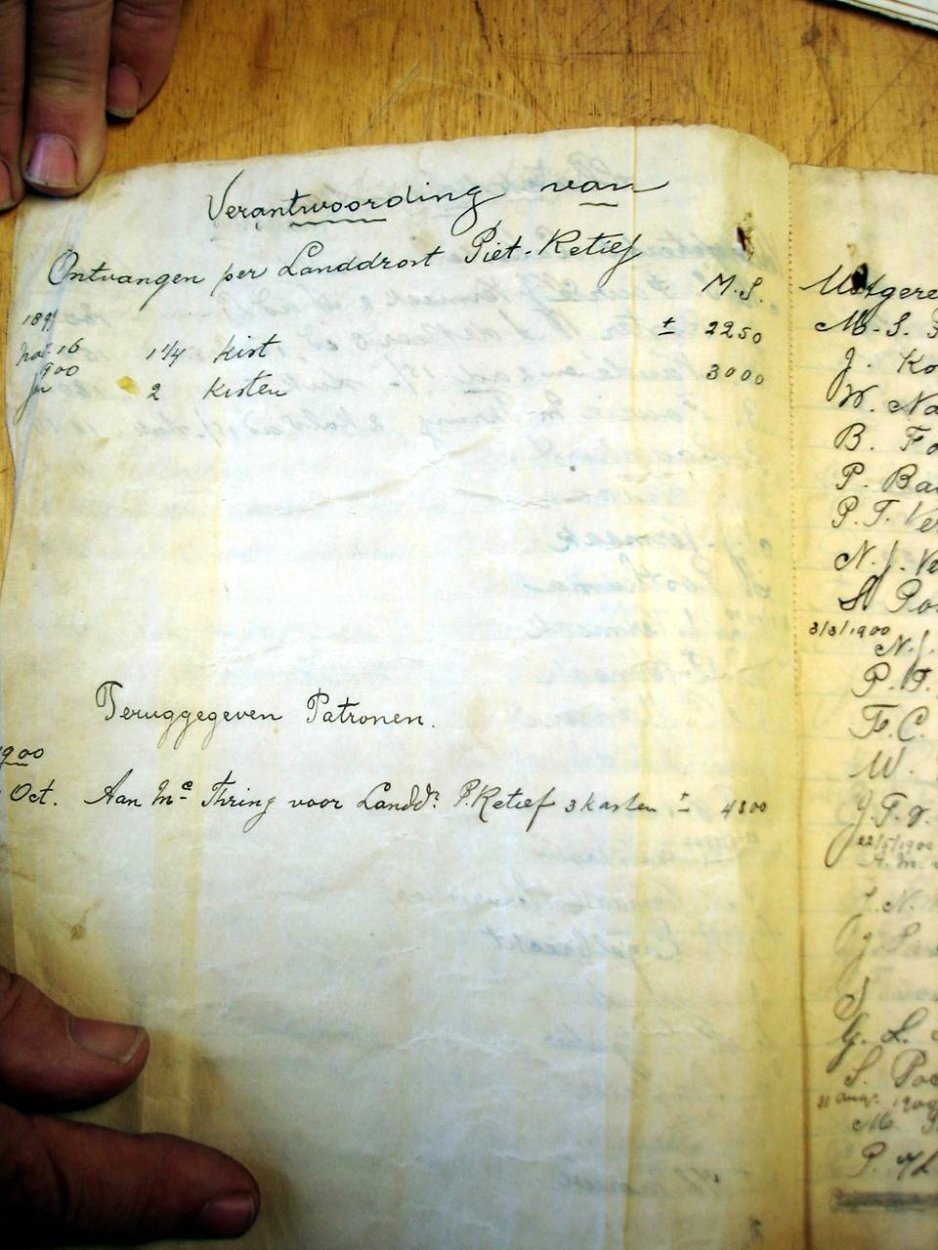 Verantwoording van
Ontvangen per Landdrost Piet-Retief
M.S.
189
Nov. 16 1 1/4 kist ± 2250
900
Jn 2 kisten 3000
Teruggegeven Patronen.
900
Oct. Aan Mc Thring voor Landdr. P. Retief 3 kasten ± 4800
Uitgere
M. S.
J. Ko
W. Na
B. Fo
P. Ba
P. T. Ve
N. J. Ve
Po
3/3/1900
N. J.
P. T.
F. C.
W.
J. T. v.
22/5/1900
A. M.
J. N.
J
G. L.
S. Po
31 Aug. 1900
M
P.